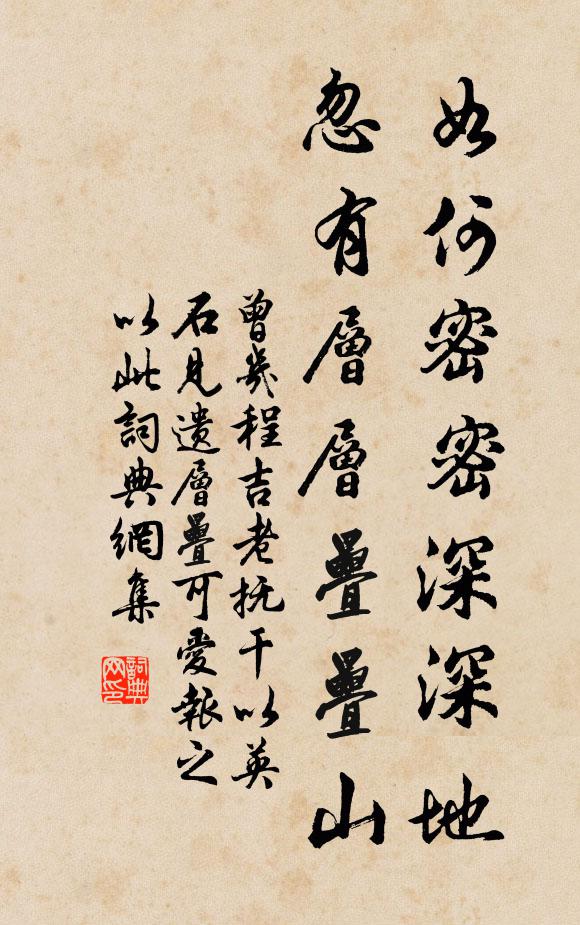 如何密密深深地
忽有層層疊疊山
曾幾程吉老抚干以英
石見遺層疊可愛報之
以此詞典網集
詞典网印